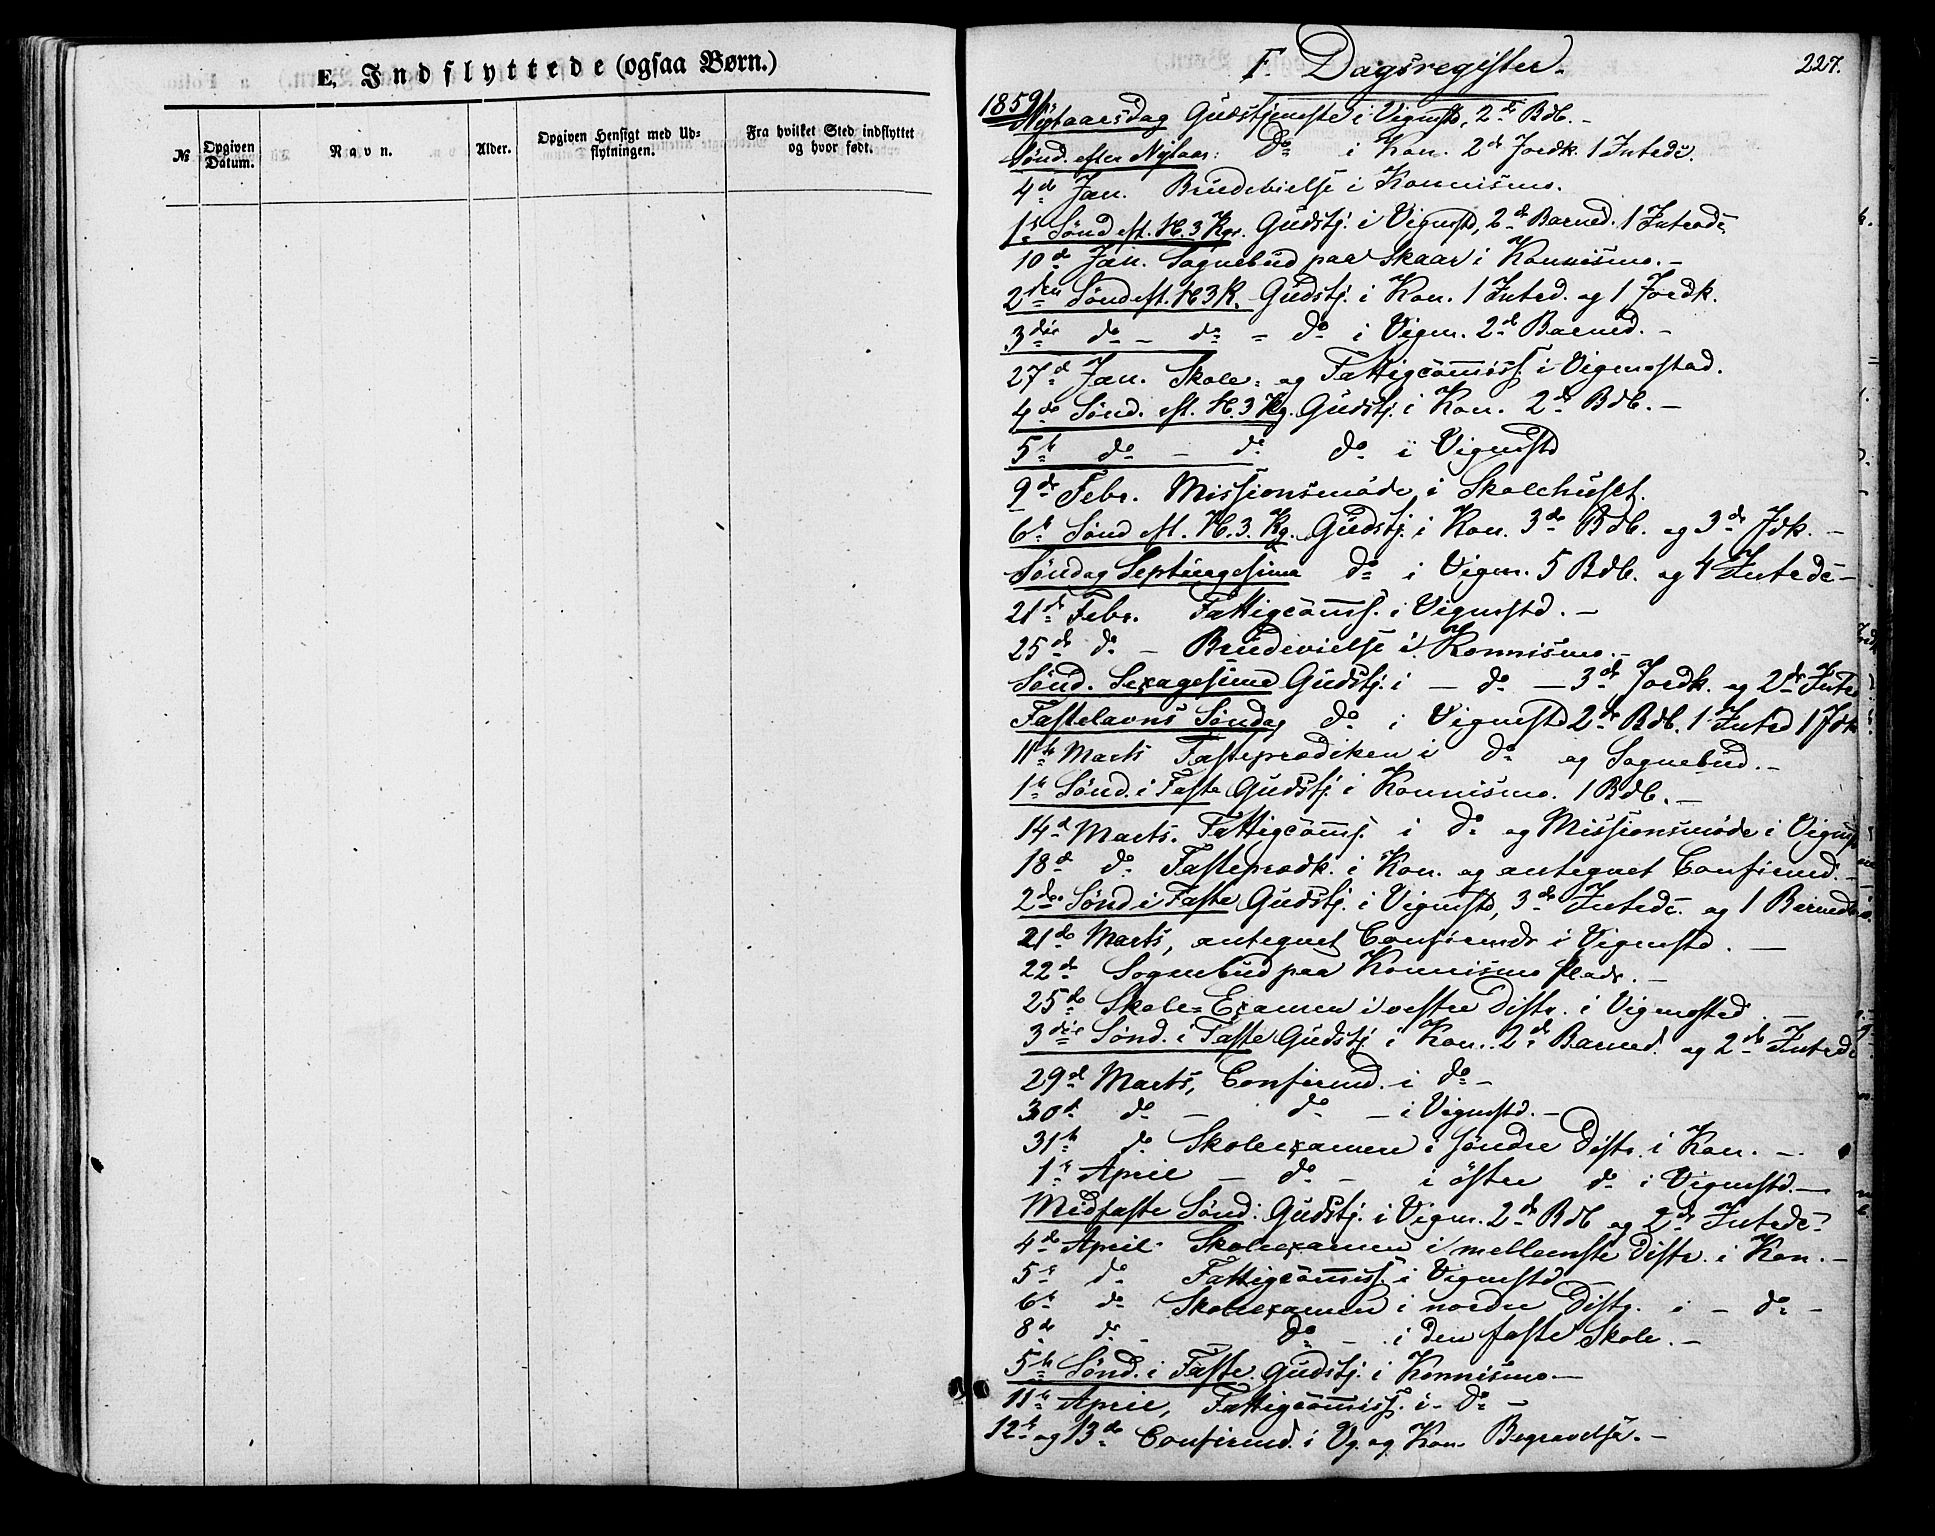 E, Indflyttede (ogsaa Børn.)
№
Opgiven Datum.
Navn.
Alder.
Opgiven Hensigt med Udflytningen.
Fra hvilket Sted indflyttet og hvor født.
F. Dagsregister.
227.
1859
Nytaarsdag Gudstjeneste i Vigmstd, 2de Bdb. -
Sønd. efter Nytaar: Do i Kon. 2de Jordk. 1 Introdc.
4de Jan. Brudevielse i Konnismo.
1ste Sønd eft. H. 3 Kgr. Gudstj. i Vigmstd, 2de Barned. 1 Introdc
10de Jan. Sognebud paa Skaar i Konnismo. -
2den Sønd eft. H 3 K. Gudstj. i Kon. 1 Introd. og 1 Jordk.
3die do - do = do i Vigm. 2de Barned. -
27de Jan. Skole- og Fattigcom̄iss. i Vigmostad.
4de Sønd. eft. H. 3 Kg. Gudstj. i Kon. 2de Bdb. -
5te do - do do i Vigmstd
9de Febr. Missionsmøde i Skolehuset.
6te Sønd eft. H. 3. Kg. Gudstj. i Kon. 3de Bdb. og 3de Jdk. -
Søndag Septuagesima do i Vigm. 5 Bdb. og 4 Introdc -
21de Febr. Fattigcom̄s. i Vigmstd. -
25de do - Brudevielse i Konnismo. -
Sønd. Sexagesima Gudstj. i - do - 3de Jordk. og 2de Intr
Fastelavns Søndag do i Vigmstd 2de Bdb. 1 Introd 1 Jdk
11te Marts Fasteprædiken i do og Sognebud. -
1ste Sønd. i Faste Gudstj. i Konnismo. 1 Bdb. -
14de Marts. Fattigcom̄s. i do og Missionsmøde i Vigms
18de do Fasteprædk. i Kon. og antegnet Confirmd. -
2den Sønd i Faste Gudstj. i Vigmstd, 3de Introdc. og 1 Barnedb
21de Marts, antegnet Confirmdr i Vigmstd. -
22de Sognebud paa Konnismo Plads. -
25de Skole-Examen i vestre Distr. i Vigmostad. -
3die Sønd. i Faste Gudstj. i Kon. 2de Barned. og 2de Introdc
29de Marts, Confirmd. i do -
30de do - do - i Vigmstd. -
31te do Skoleexamen i søndre Distr. i Kon. -
1ste April - do - i østre do i Vigmstd. -
Midfaste Sønd: Gudstj. i Vigm. 2de Bdb og 2de Introdc.
4de April Skoleexamen i mellemste Distr. i Kon. -
5te do Fattigcom̄iss. i Vigmstd
6te do Skoleexamen i nordre Distr. i - do -
8de do - do - i den faste Skole. -
5te Sønd. i Faste Gudstj. i Konnismo. -
11te April, Fattigcom̄iss. i do -
12te og 13de Confirmd. i Vg. og Kon. Begravelse. -